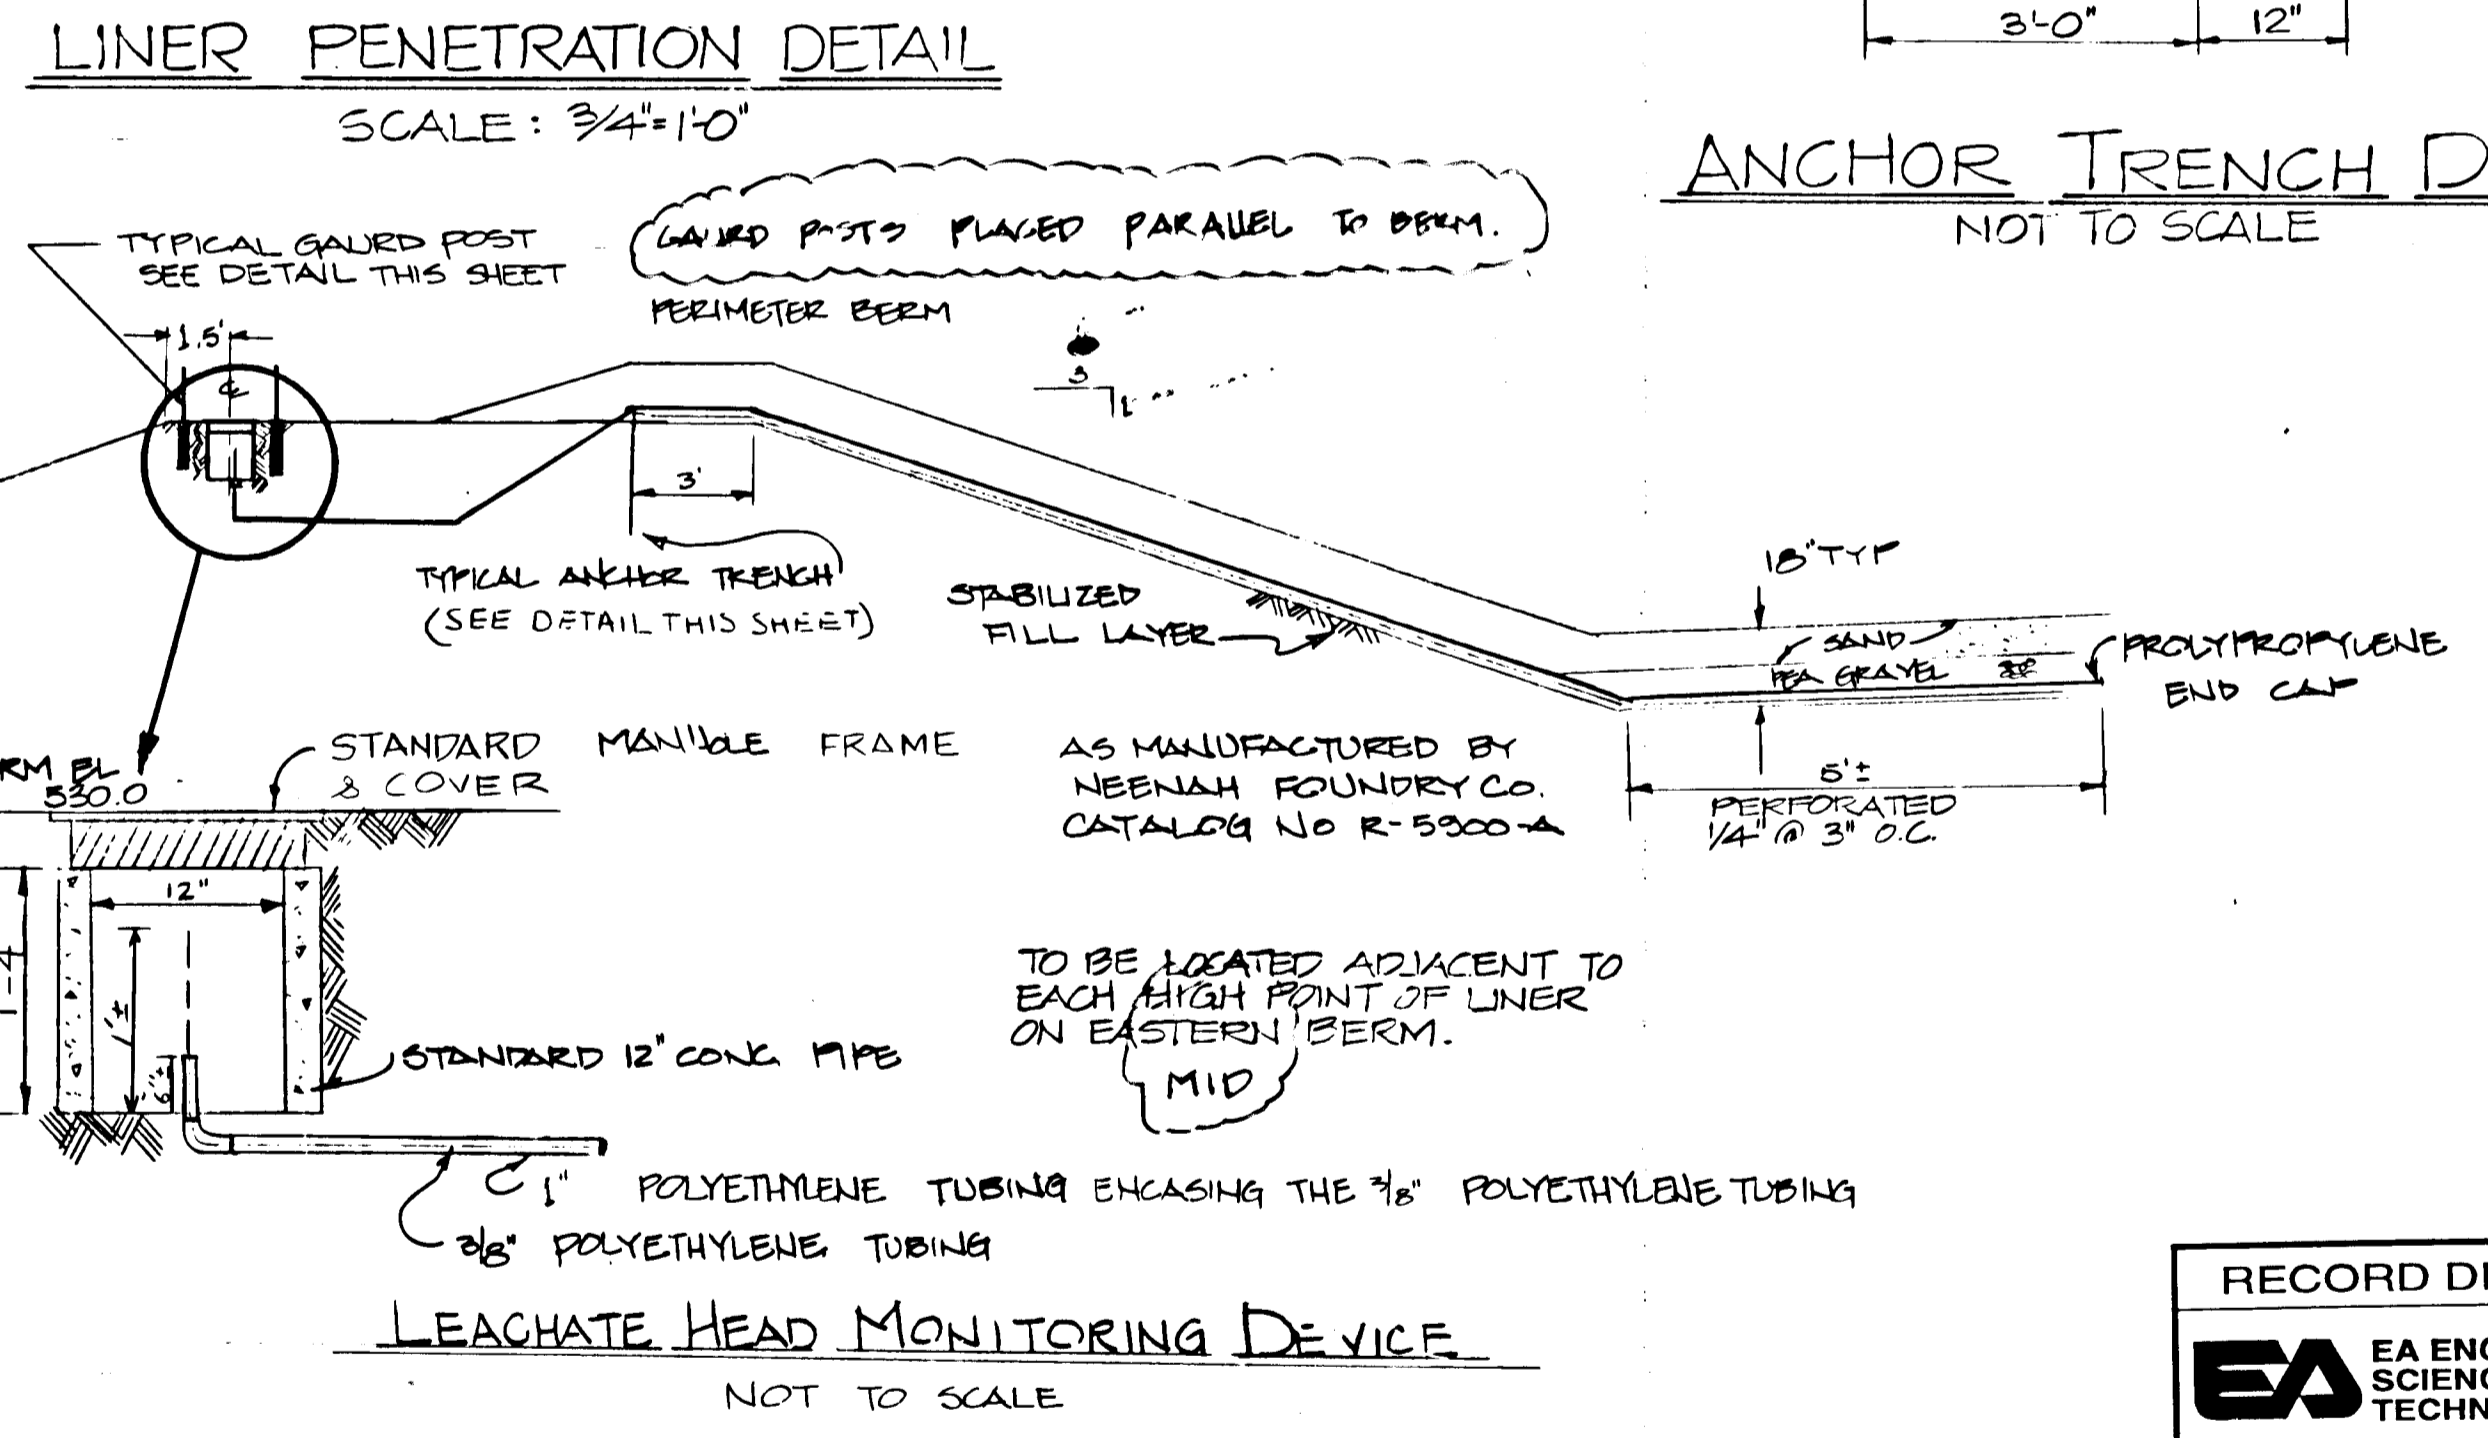 LINER PENETRATION DETAIL
SCALE: 3/4"=1'-0"
3'-0"
12"
ANCHOR TRENCH D
NOT TO SCALE
TYPICAL GAURD POST
SEE DETAIL THIS SHEET
GAURD POSTS PLACED PARALLEL TO BERM.
PERIMETER BERM
1.5'
℄
3
1
3'
TYPICAL ANCHOR TRENCH
(SEE DETAIL THIS SHEET)
STABILIZED
FILL LAYER
18" TYP
SAND
PEA GRAVEL
PROLYPROPYLENE
END CAP
5'±
PERFORATED
1/4" @ 3" O.C.
RM EL
530.0
STANDARD MANHOLE FRAME
& COVER
AS MANUFACTURED BY
NEENAH FOUNDRY CO.
CATALOG NO R-5900-A
12"
1'±
6"±
STANDARD 12" CONC. PIPE
TO BE LOCATED ADJACENT TO
EACH HIGH POINT OF LINER
ON EASTERN BERM.
MID
1" POLYETHYLENE TUBING ENCASING THE 3/8" POLYETHYLENE TUBING
3/8" POLYETHYLENE TUBING
LEACHATE HEAD MONITORING DEVICE
NOT TO SCALE
RECORD
EA
EA ENG
SCIENC
TECHN